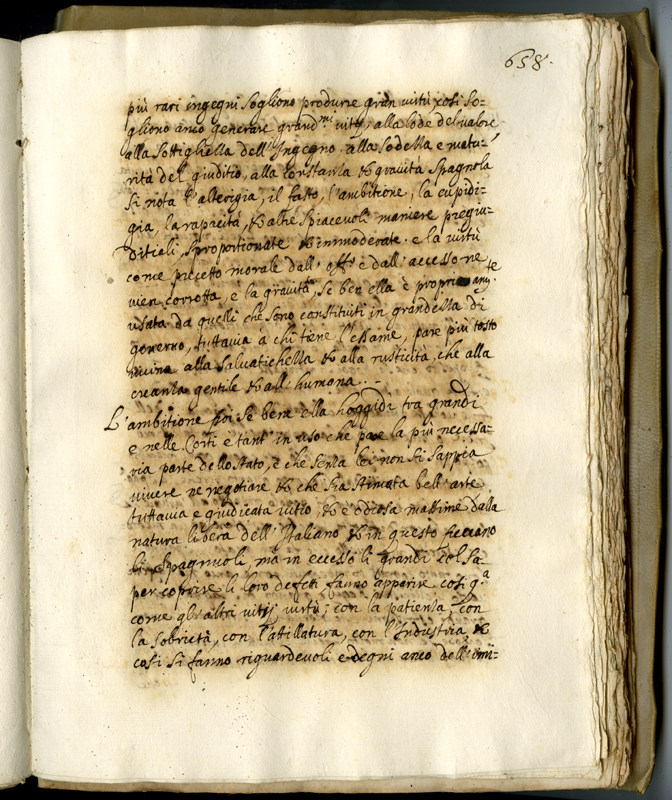 658.
più rari ingegni sogliono produrre gran virtù, così so=
gliono anco generare grand.mi vitij, alla lode del valore
alla sottigliezza dell'Ingegno alla sodezza e matu=
rità del giuditio, alla constanza & gravità Spagnola
si nota l'alterigia, il fasto, l'ambitione, la cupidi=
gia, la rapacità, & altre spiacevoli maniere pregiu=
ditiali, sproportionate & immoderate. e la virtù
come precetto morale dall' & dall' accesso ne
vien corrotta, e la gravità, se ben ella è propria
usata da quelli che sono constituiti in grandezza di
governo, tuttavia à chi tiene l'essame, pare più tosto
vicina alla salvatichezza & alla rusticità, che alla
creanza gentile & all' humana.
L'ambitione poi se bene ella hoggidì tra grandi
e nelle Corti è tant' in uso che pare la più necessa=
ria parte dello stato, e che senza lei non si sappia
vivere ne negotiare & che sia stimata bell'arte
tuttavia è giudicata vitio, & è odiosa massime dalla
natura libera dell' Italiano & in questo
li Spagnuoli, ma in eccesso li grandi col sa=
per coprire li loro defetti fanno apparire così q.a
come gl'altri vitij virtù; con la patienza con
la sobrietà, con l'attillatura, con l'Industria &
così si fanno riguardevoli e degni anco dell'imi=